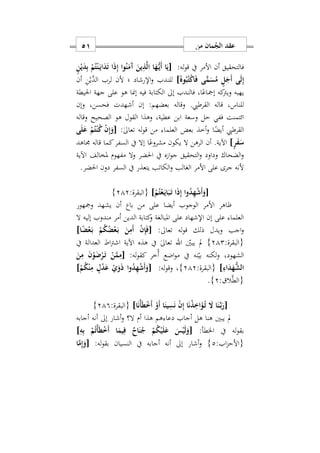 عقد الجُمان من
٥١
فالتحقيق أن الأمر في قوله: [يَا أَيُّهَا الَّذِينَ آَمَنُوا إِذَا تَدَايَنْتُمْ بِدَيْنٍ
إِلَى أَجَلٍ مُسَمًّى فَاكْتُبُوهُ] للندب والإرشاد ؛ لأن لرب الدَّيْنِ أن
يهبه ويتركه إجماعًا، فالندب إلى الكتابة فيه إنما هو على جهة الحيطة
للناس، قاله القرطبي. وقاله بعضهم: إن أشهدت فحسن، وإن
ائتمنت ففي حل وسعة ابن عطية، وهذا القول هو الصحيح وقاله
القرطبي أيضًا وأخذ بعض العلماء من قوله تعالى: [وَإِنْ كُنْتُمْ عَلَى
سَفَرٍ] الآية. أن الرهن لا يكون مشروعًا إلا في السفر كما قاله مجاهد
والضحاك وداود والتحقيق جوازه في الحضر ولا مفهوم لمخالف الآية
لأنه جرى على الأمر الغالب والكاتب يتعذر في السفر دون الحضر.
[وَأَشْهِدُوا إِذَا تَبَايَعْتُمْ] {البقرة:٢٨٢}
ظاهر الأمر الوجوب أيضا على من باع أن يشهد وجمهور
العلماء على إن الإشهاد على المبالغة وكتابة الدين أمر مندوب إليه لا
واجب ويدل ذلك قوله تعالى: [فَإِنْ أَمِنَ بَعْضُكُمْ بَعْضًا]
{البقرة:٢٨٣} لم يبيّن الله تعالىَ في هذه الآية اشتراط العدالة في
الشهود، ولكنه بيّنه في مواضع أُخر كقوله: [مِمَّنْ تَرْضَوْنَ مِنَ
الشُّهَدَاءِ] {البقرة:٢٨٢}، وقوله: [وَأَشْهِدُوا ذَوَيْ عَدْلٍ مِنْكُمْ]
{الطَّلاق:٢}.
[رَبَّنَا لَا تُؤَاخِذْنَا إِنْ نَسِينَا أَوْ أَخْطَأْنَا] {البقرة:٢٨٦}
لم يبين هنا هل أجاب دعاءهم هذا أم لا؟ وأشار إلى أنه أجابه
بقوله في الخطأ: [وَلَيْسَ عَلَيْكُمْ جُنَاحٌ فِيمَا أَخْطَأْتُمْ بِهِ]
{الأحزاب:٥} وأشار إلى أنه أجابه في النسيان بقوله: [وَإِمَّا